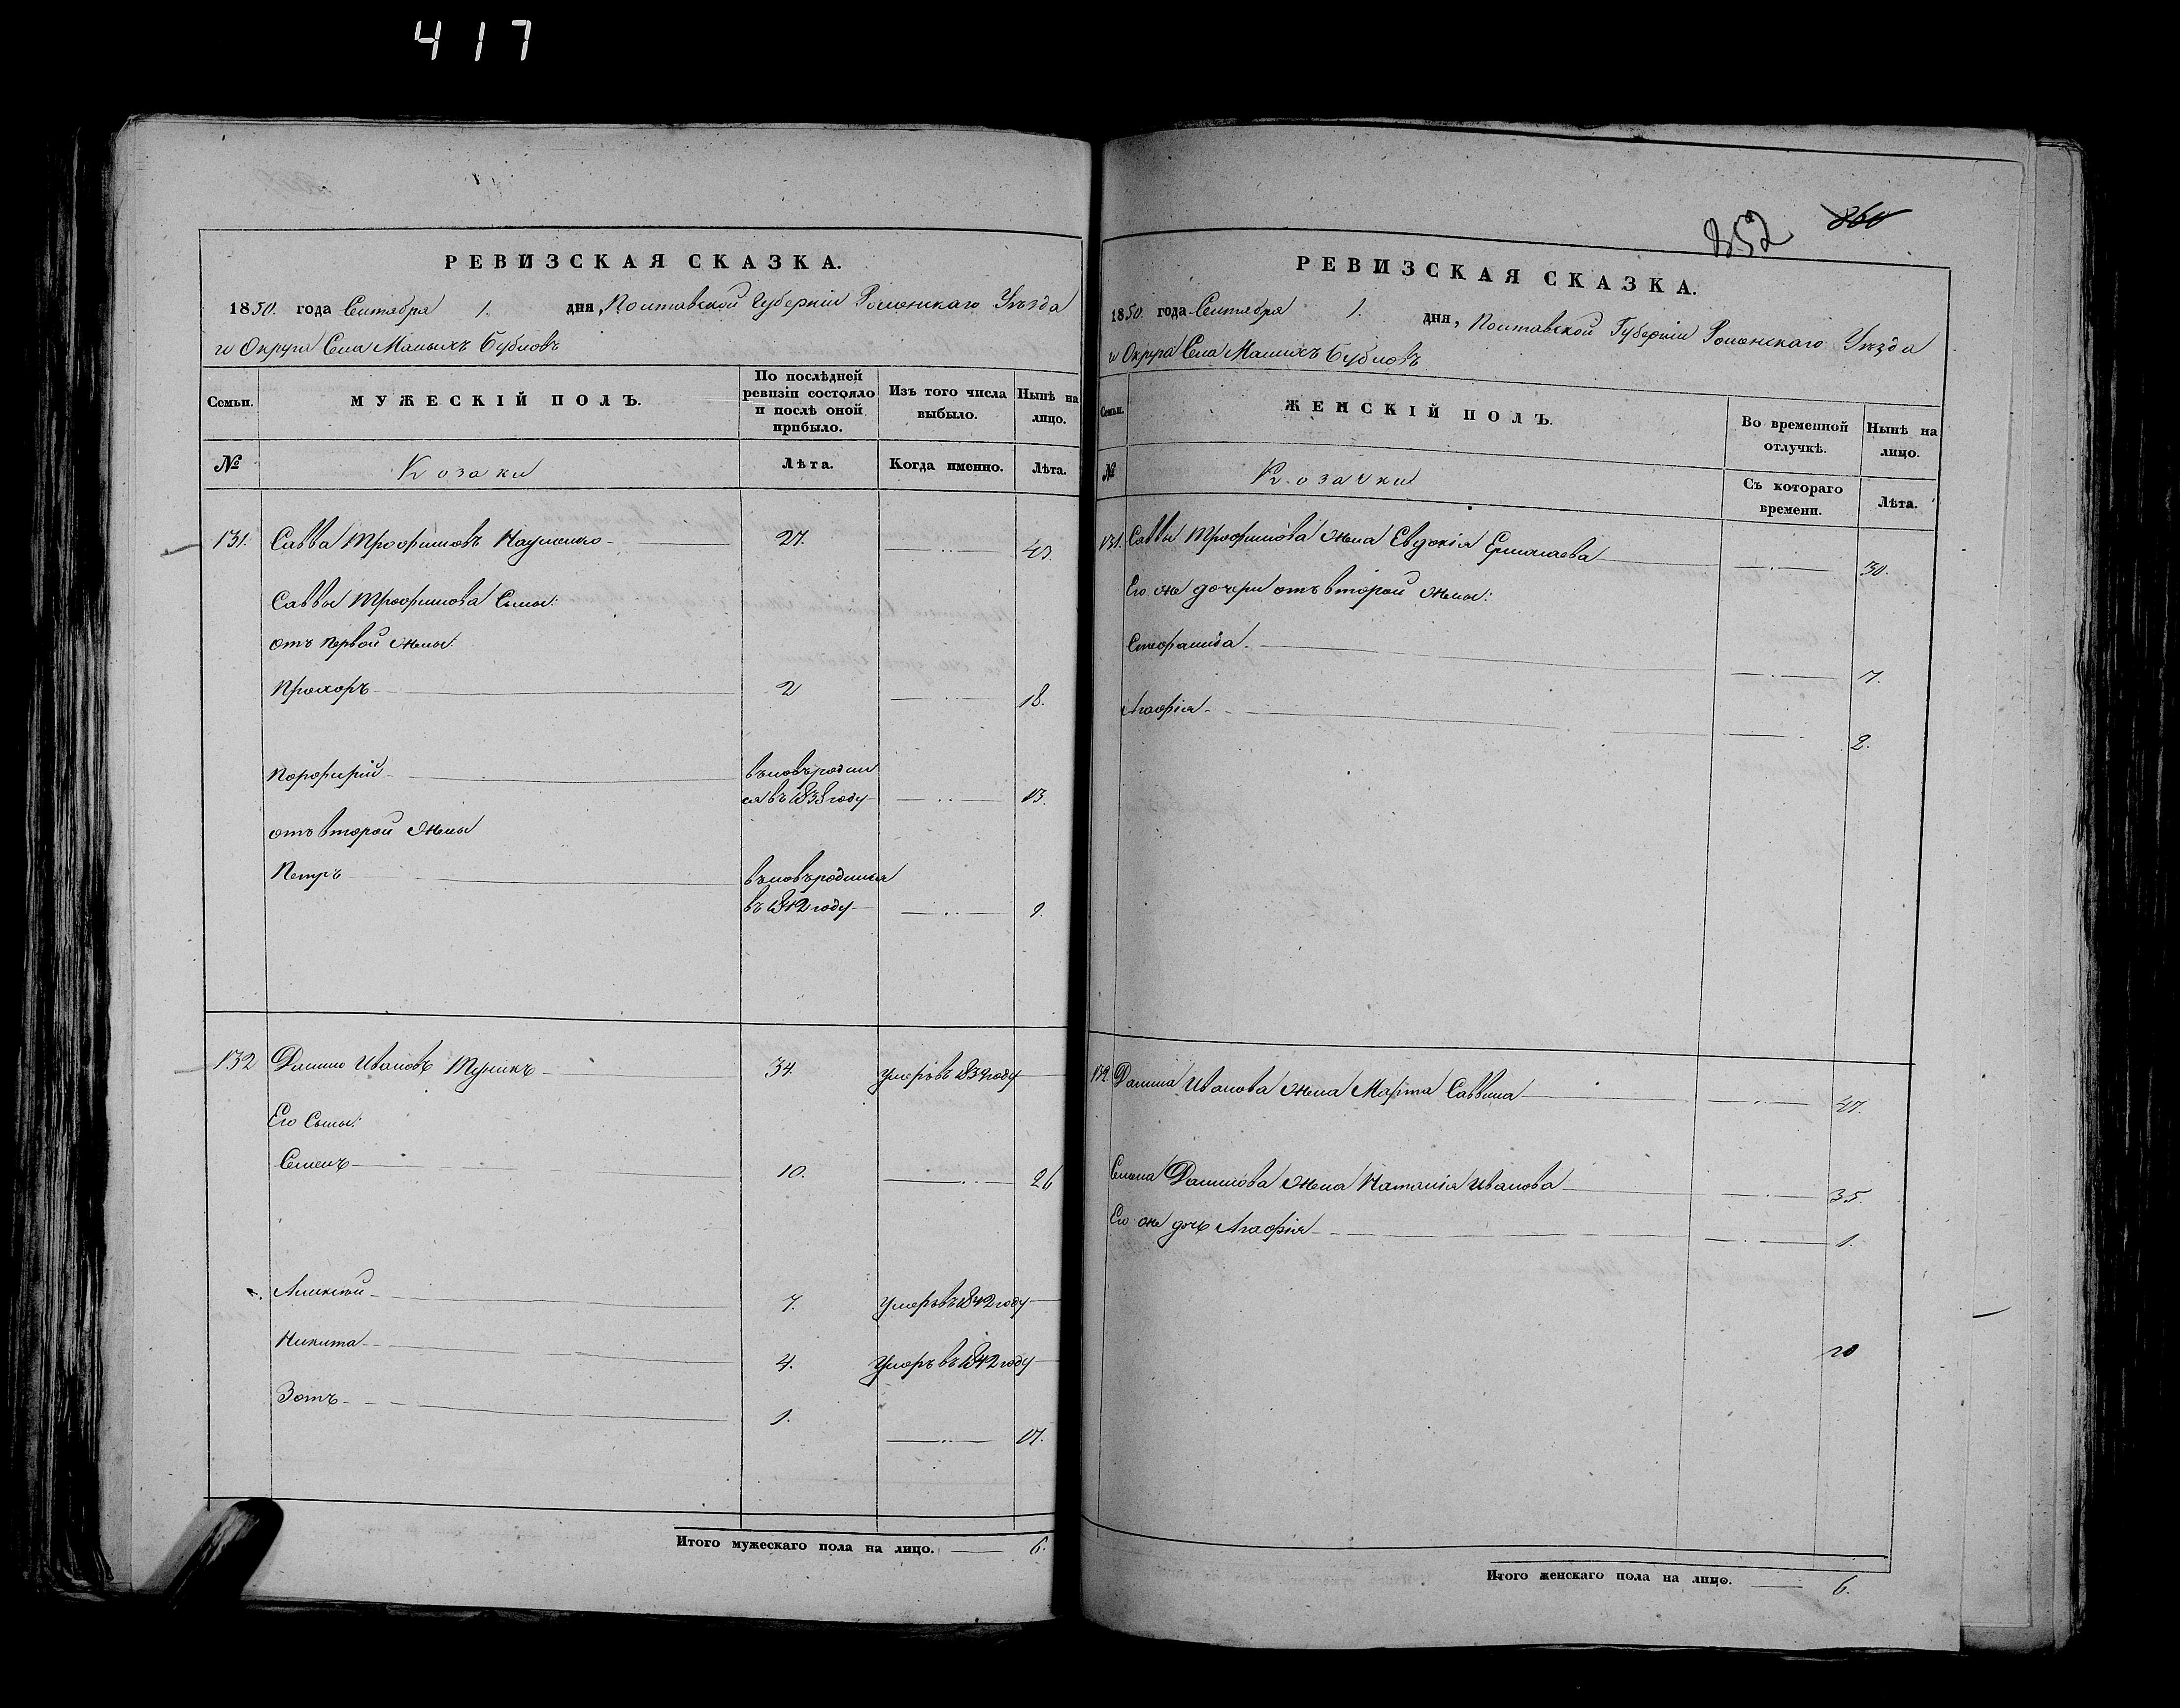 417
РЕВИЗСКАЯ СКАЗКА.
1850. года Сентября 1. дня, Полтавской Губерніи Роменскаго Уѣзда
и Округа Села Малыхъ Бубновъ
Семьи.
МУЖЕСКІЙ ПОЛЪ.
По послѣдней ревизіи состояло и послѣ оной прибыло.
Изъ того числа выбыло.
Нынѣ на лицо.
№
Козаки
Лѣта.
Когда именно.
Лѣта.
131. Савва Трофимовъ Науменко 27. 43.
Саввы Трофимова Сыны:
отъ первой жены:
Прохоръ 2 18.
Порфирій вновь родил
ся въ 1838 году 13.
отъ второй жены
Петръ вновь родился
въ 1842 году 9.
132 Данило Ивановъ 34. умеръ въ 1839 году
Его Сыны:
Семенъ 10. 26
Алексѣй 7. умеръ въ 1842 году
Никита 4. умеръ въ 1842 году
Зотъ 1. 17.
Итого мужескаго пола на лицо. 6.
352 360
РЕВИЗСКАЯ СКАЗКА.
1850. года Сентября 1. дня, Полтавской Губерніи Роменскаго Уѣзда
и Округа Села Малыхъ Бубновъ
Семьи.
ЖЕНСКІЙ ПОЛЪ.
Во временной отлучкѣ.
Нынѣ на лицо.
№
Козачки
Съ котораго времени.
Лѣта.
131. Саввы Трофимова жена Евдокія Ермолаева 30.
Его же дочери отъ второй жены:
Стефанида 7.
Агафія 2.
132. Данила Иванова жена Марфа Саввина 47.
Семена Данилова жена Наталія Иванова 35.
Его же дочь Агафія 1.
Итого женскаго пола на лицо. 6.